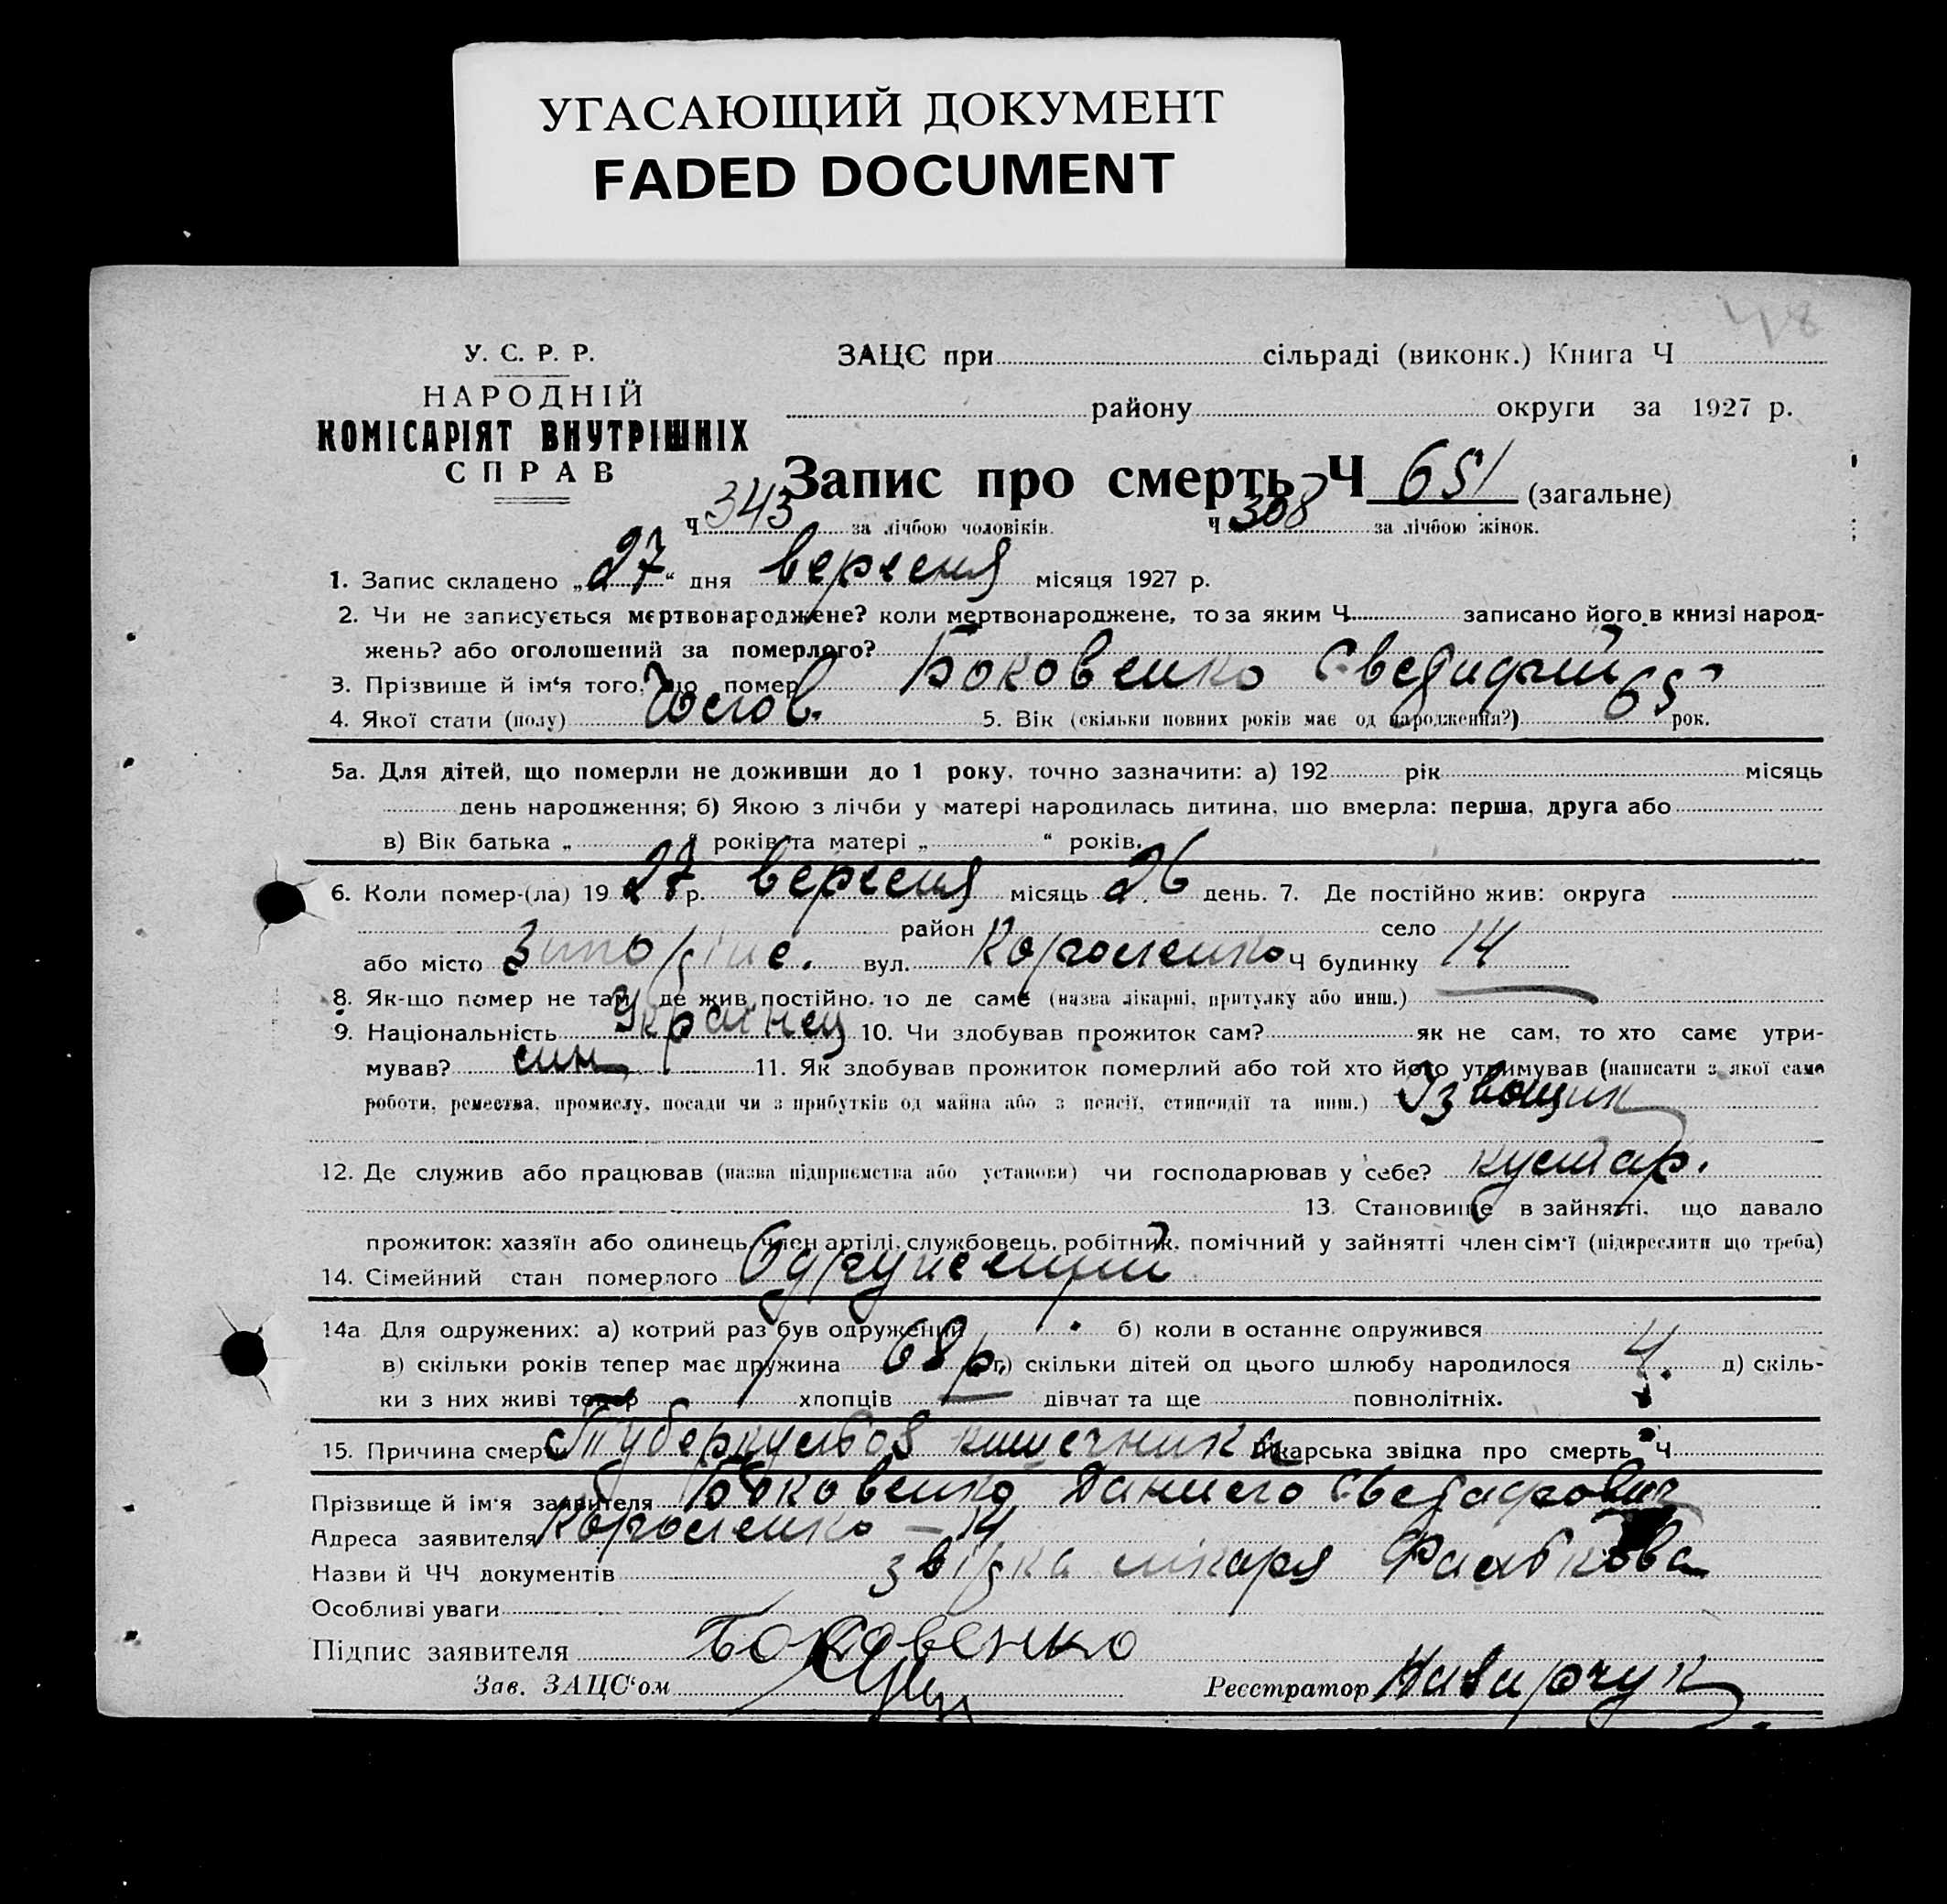 УГАСАЮЩИЙ ДОКУМЕНТ
FADED DOCUMENT
48
У. С. Р. Р.
НАРОДНІЙ
КОМІСАРІЯТ ВНУТРІШНІХ
СПРАВ
ЗАЦС при сільраді (виконк.) Книга Ч
району округи за 1927 р.
Запис про смерть Ч 651 (загальне)
Ч 343 за лічбою чоловіків. Ч 308 за лічбою жінок.
1. Запис складено „27“ дня вересня місяця 1927 р.
2. Чи не записується мертвонароджене? коли мертвонароджене, то за яким Ч записано його в книзі народ-
жень? або оголошений за померлого?
3. Прізвище й ім‘я того, що помер Боковенко
4. Якої стати (полу) Чолов. 5. Вік (скільки повних років має од народження?) 65 рок.
5а. Для дітей, що померли не доживши до 1 року, точно зазначити: а) 192 рік місяць
день народження; б) Якою з лічби у матері народилась дитина, що вмерла: перша, друга або
в) Вік батька „ “ років та матері „ “ років.
6. Коли помер-(ла) 1927 р. вересня місяць 26 день. 7. Де постійно жив: округа
район село
або місто вул. Короленко Ч будинку 14
8. Як-що помер не там, де жив постійно, то де саме (назва лікарні, притулку або инш.) —
9. Національність Українец 10. Чи здобував прожиток сам? як не сам, то хто саме утри-
мував? син 11. Як здобував прожиток померлий або той хто його утримував (написати з якої саме
роботи, ремества, промислу, посади чи з прибутків од майна або з пенсії, стипендії та инш.) Ізвощик
12. Де служив або працював (назва підприємства або установи) чи господарював у себе? кустар.
13. Становище в зайнятті, що давало
прожиток: хазяїн або одинець, член артілі, службовець, робітник, помічний у зайнятті член сім‘ї (підкреслити що треба)
14. Сімейний стан померлого Одружений
14а Для одружених: а) котрий раз був одружений б) коли в останнє одружився
в) скільки років тепер має дружина 68 р. г) скільки дітей од цього шлюбу народилося 4. д) скіль-
ки з них живі тепер хлопців — дівчат та ще повнолітніх.
15. Причина смерти Туберкульоз кишечника Лікарська звідка про смерть Ч
Прізвище й ім‘я заявителя Боковенко Данило
Адреса заявителя Короленко – 14
Назви й ЧЧ документів звідка лікаря
Особливі уваги
Підпис заявителя Боковенко
Зав. ЗАЦС‘ом
Реєстратор